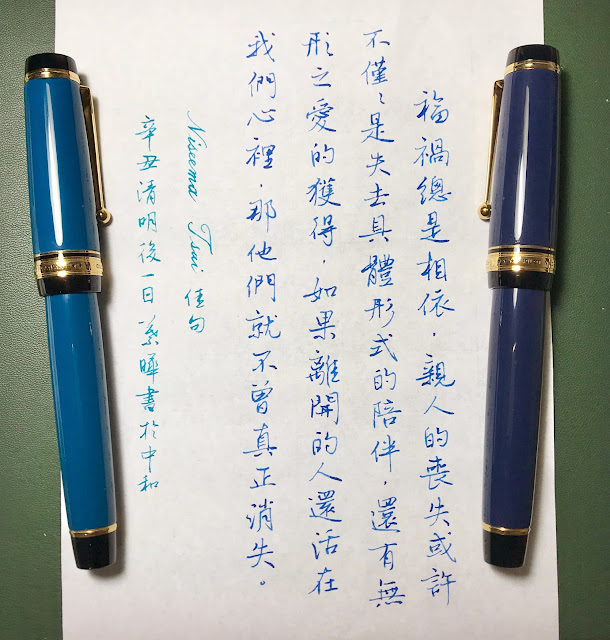 福禍總是相依，親人的喪失或許
不僅〻是失去具體形式的陪伴，還有無
形之愛的獲得，如果離開的人還活在
我們心裡，那他們就不曾真正消失。
Niseema Tsui 佳句
辛丑清明後一日 業暐書於中和